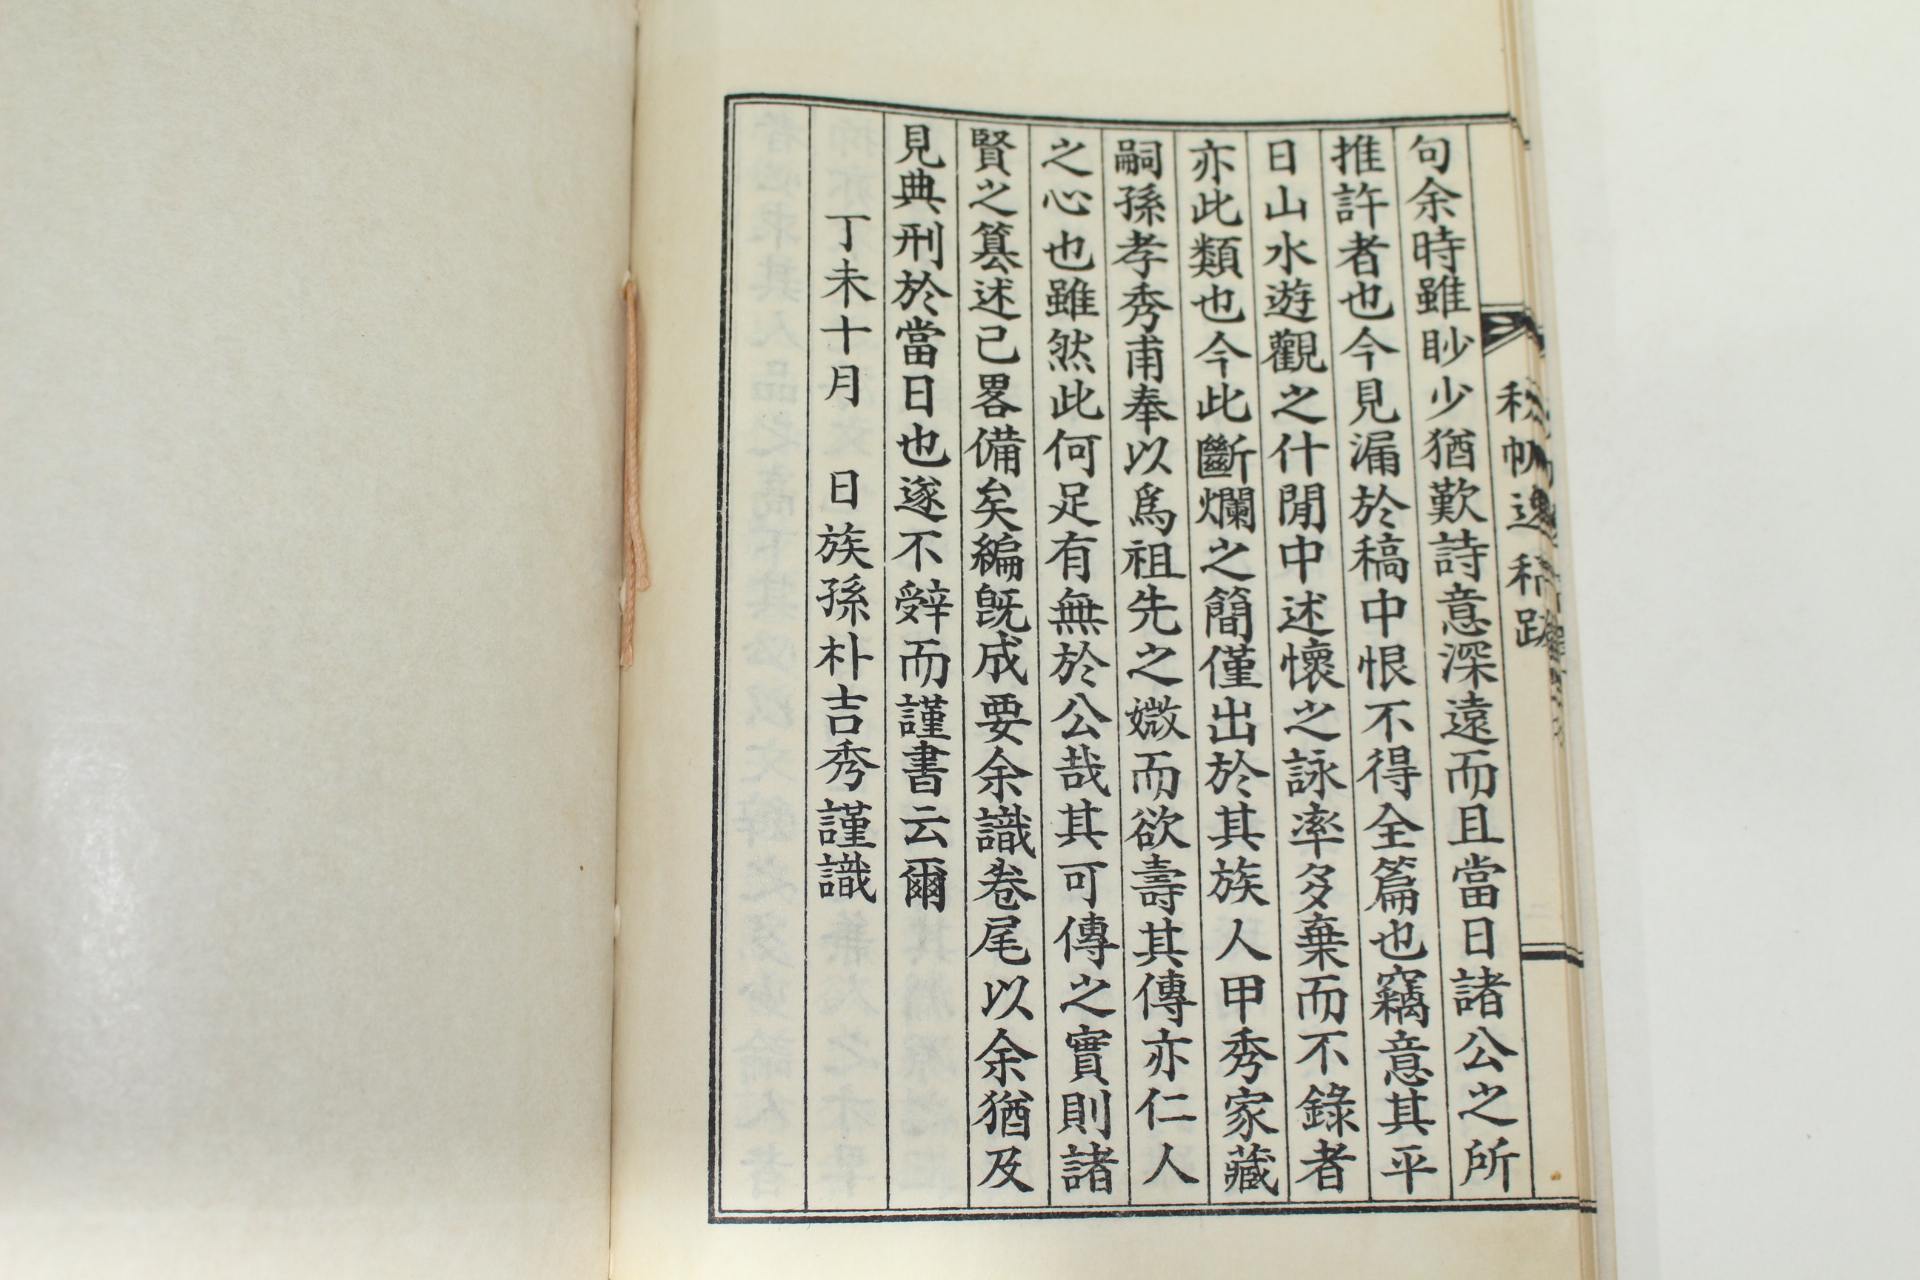 句余時雖眇少猶歎詩意深遠而且當日諸公之所
推許者也今見漏於稿中恨不得全篇也竊意其平
日山水遊觀之什閒中述懷之詠率多棄而不錄者
亦此類也今此斷爛之簡僅出於其族人甲秀家藏
嗣孫孝秀甫奉以爲祖先之媺而欲壽其傳亦仁人
之心也雖然此何足有無於公哉其可傳之實則諸
賢之篹述己畧備矣編旣成要余識卷尾以余猶及
見典刑於當日也遂不辤而謹書云爾
丁未十月 日族孫朴吉秀謹識